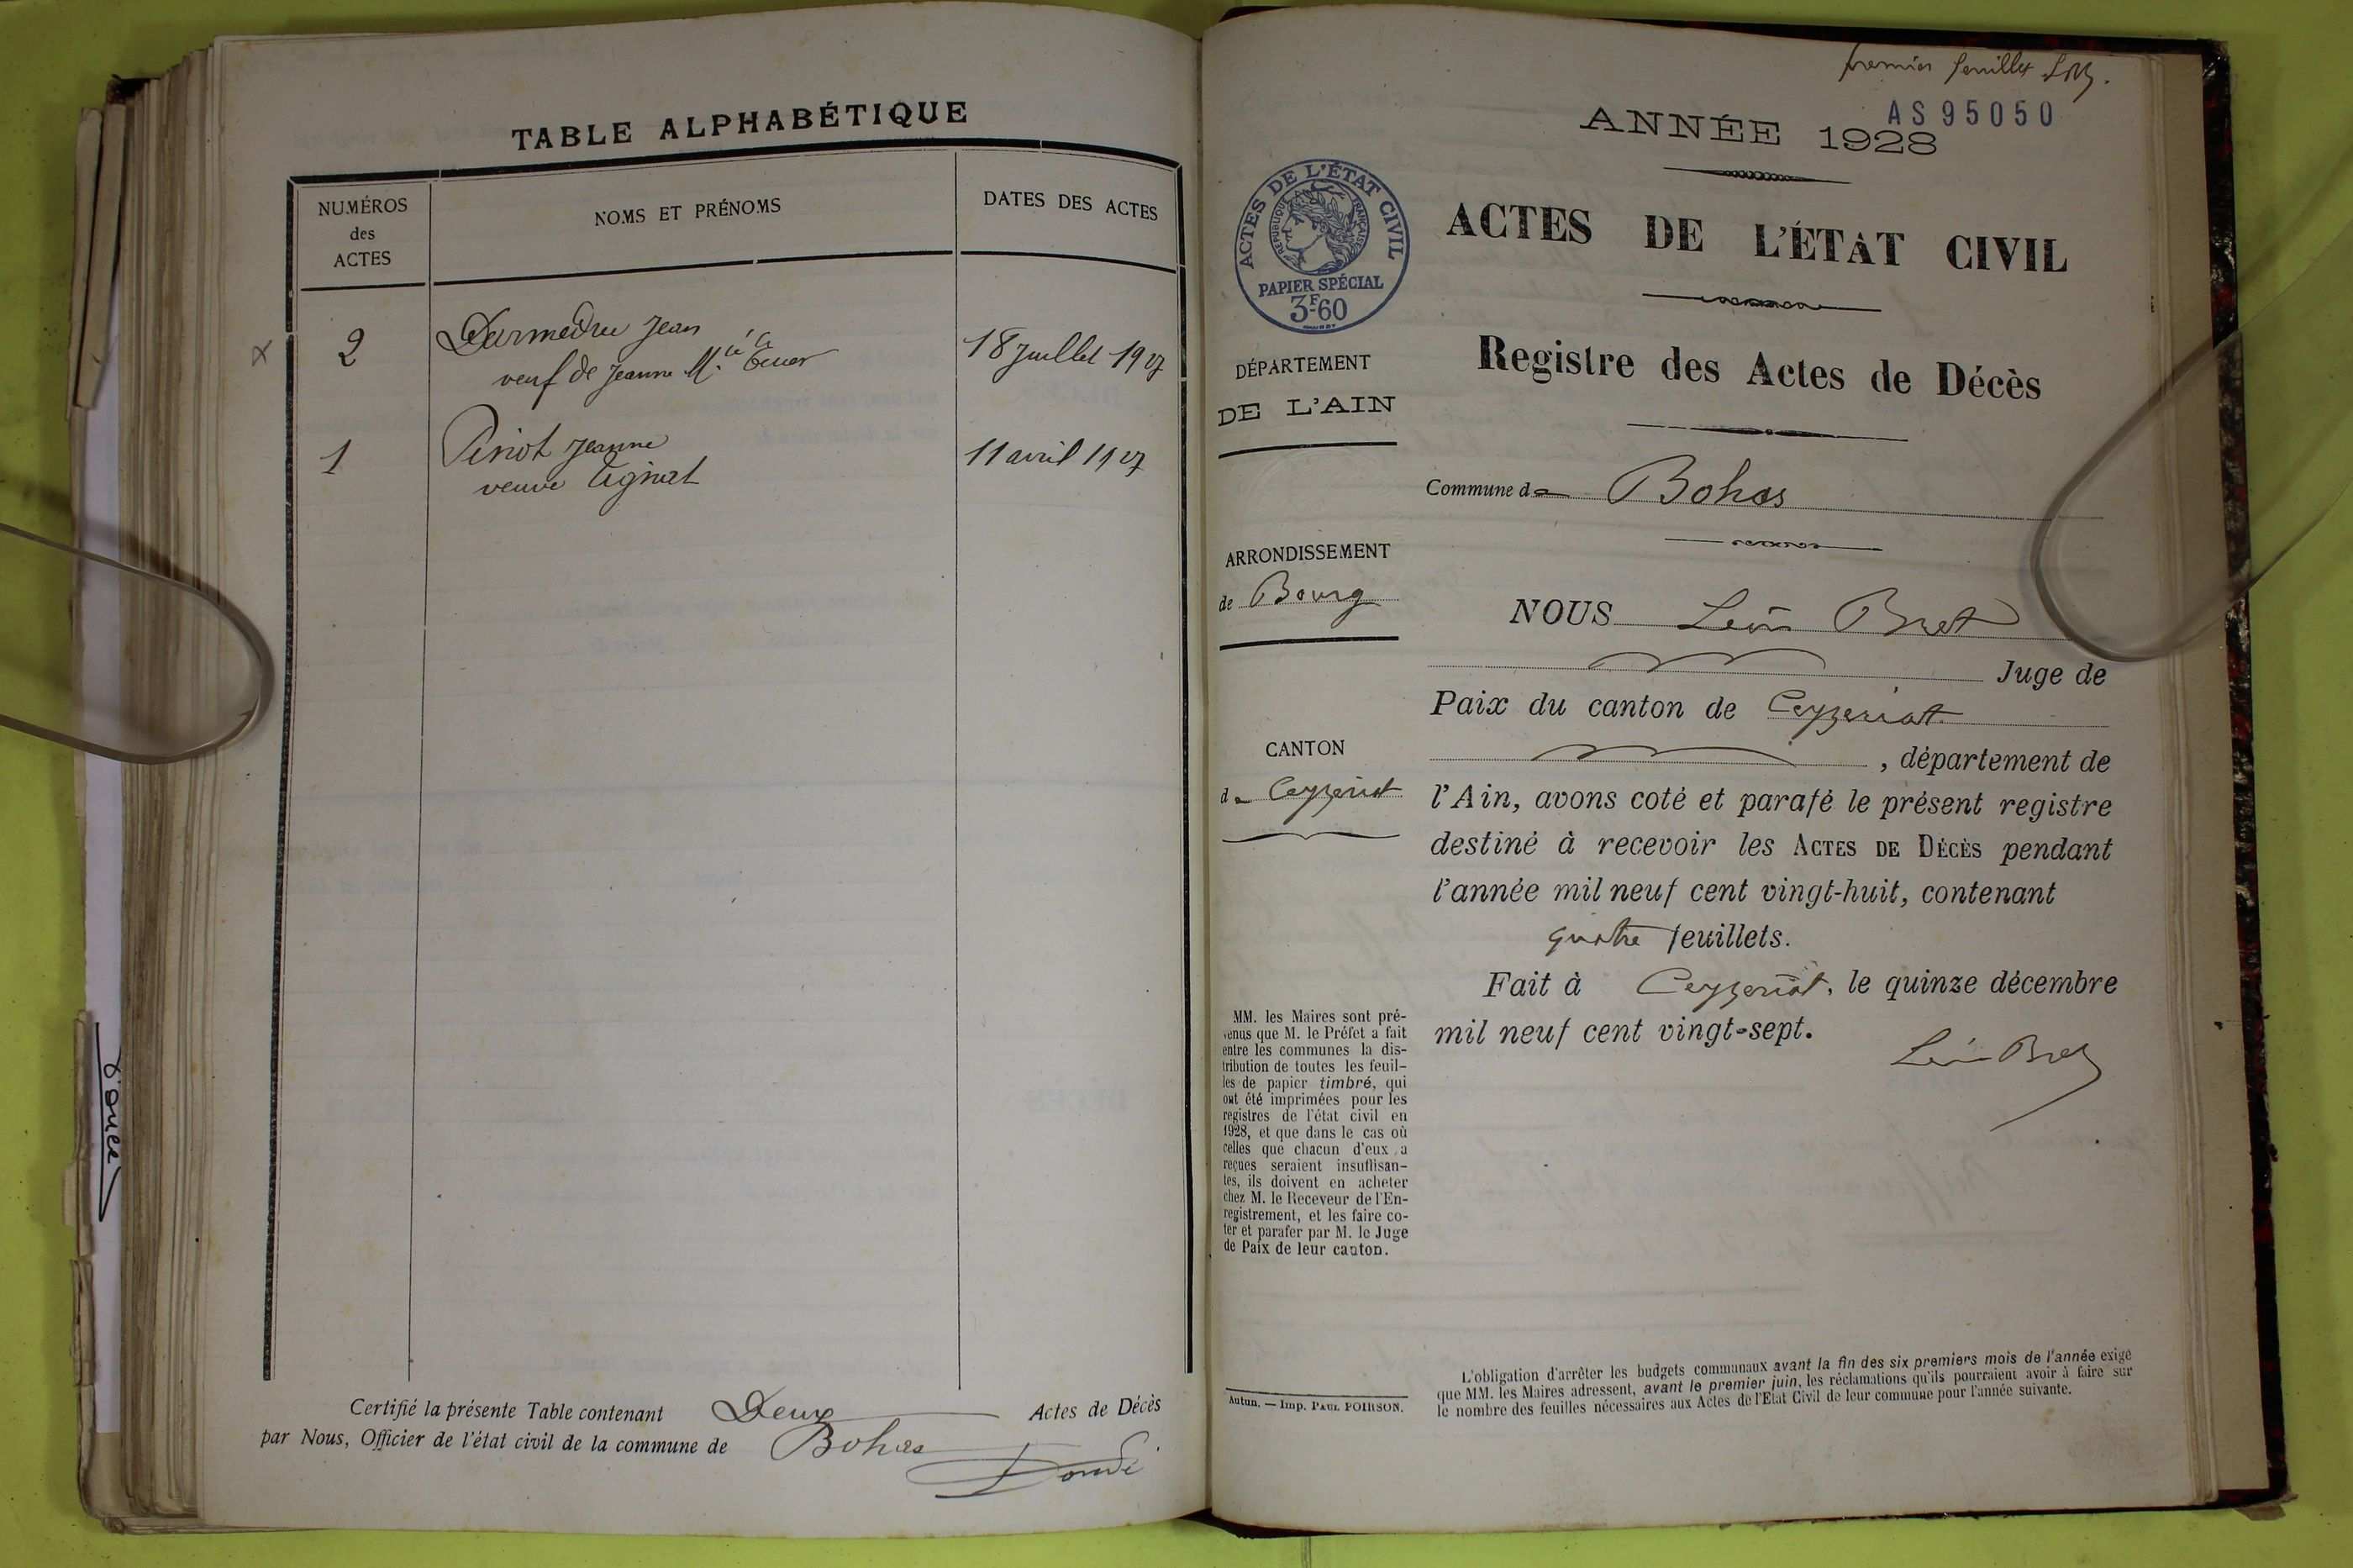 TABLE ALPHABÉTIQUE
NUMÉROS
des
ACTES
NOMS ET PRÉNOMS
DATES DES ACTES
2
Darmedru Jean
veuf de Jeanne
18 Juillet 1927
1
Pinot Jeanne
veuve
11 avril 1927
Certifié la présente Table contenant Deux Actes de Décès
par Nous, Officier de l'état civil de la commune de Bohas
premier feuillet
AS95050
ANNÉE 1928
ACTES DE L'ÉTAT CIVIL
RÉPUBLIQUE FRANÇAISE
PAPIER SPÉCIAL
3F60
ACTES DE L'ÉTAT CIVIL
Registre des Actes de Décès
DÉPARTEMENT
DE L'AIN
Commune de Bohas
ARRONDISSEMENT
de Bourg
NOUS Léon Bret
Juge de
Paix du canton de Ceyzeriat
CANTON
de Ceyzeriat
, département de
l'Ain, avons coté et parafé le présent registre
destiné à recevoir les ACTES DE DÉCÈS pendant
l'année mil neuf cent vingt-huit, contenant
quatre feuillets.
Fait à Ceyzeriat, le quinze décembre
mil neuf cent vingt-sept.
Léon Bret
MM. les Maires sont pré-
venus que M. le Préfet a fait
entre les communes la dis-
tribution de toutes les feuil-
les de papier timbré, qui
ont été imprimées pour les
registres de l'état civil en
1928, et que dans le cas où
celles que chacun d'eux a
reçues seraient insuffisan-
tes, ils doivent en acheter
chez M. le Receveur de l'En-
registrement, et les faire co-
ter et parafer par M. le Juge
de Paix de leur canton.
Autun. — Imp. PAUL POIRSON.
L'obligation d'arrêter les budgets communaux avant la fin des six premiers mois de l'année exige
que MM. les Maires adressent, avant le premier juin, les réclamations qu'ils pourraient avoir à faire sur
le nombre des feuilles nécessaires aux Actes de l'Etat Civil de leur commune pour l'année suivante.